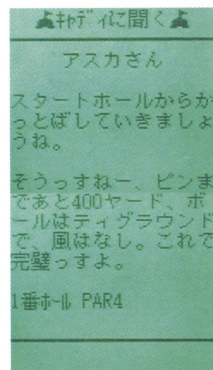 キャディに聞く
アスカさん
スタートホールからか
っとばしていきましょ
うね。
そうっすねー、ピンま
であと400ヤード、ボ
ールはティグラウンド
で、風はなし。これで
完璧っすよ。
1番ホール PAR4